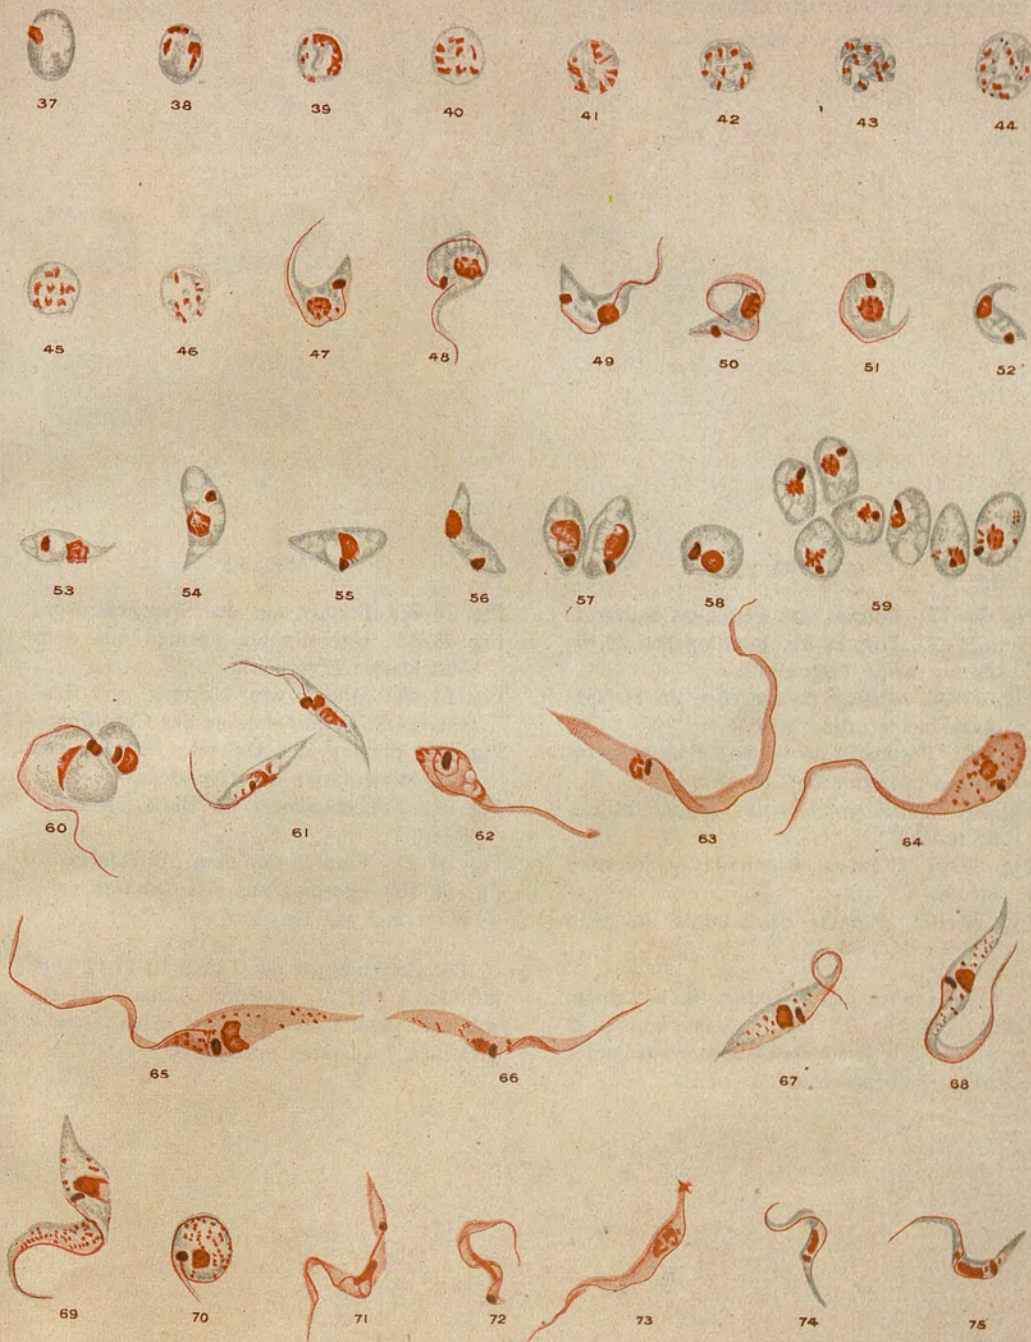 37 38 39 40 41 42 43 44
45 46 47 48 49 50 51 52
53 54 55 56 57 58 59
60 61 62 63 64
65 66 67 68
69 70 71 72 73 74 75